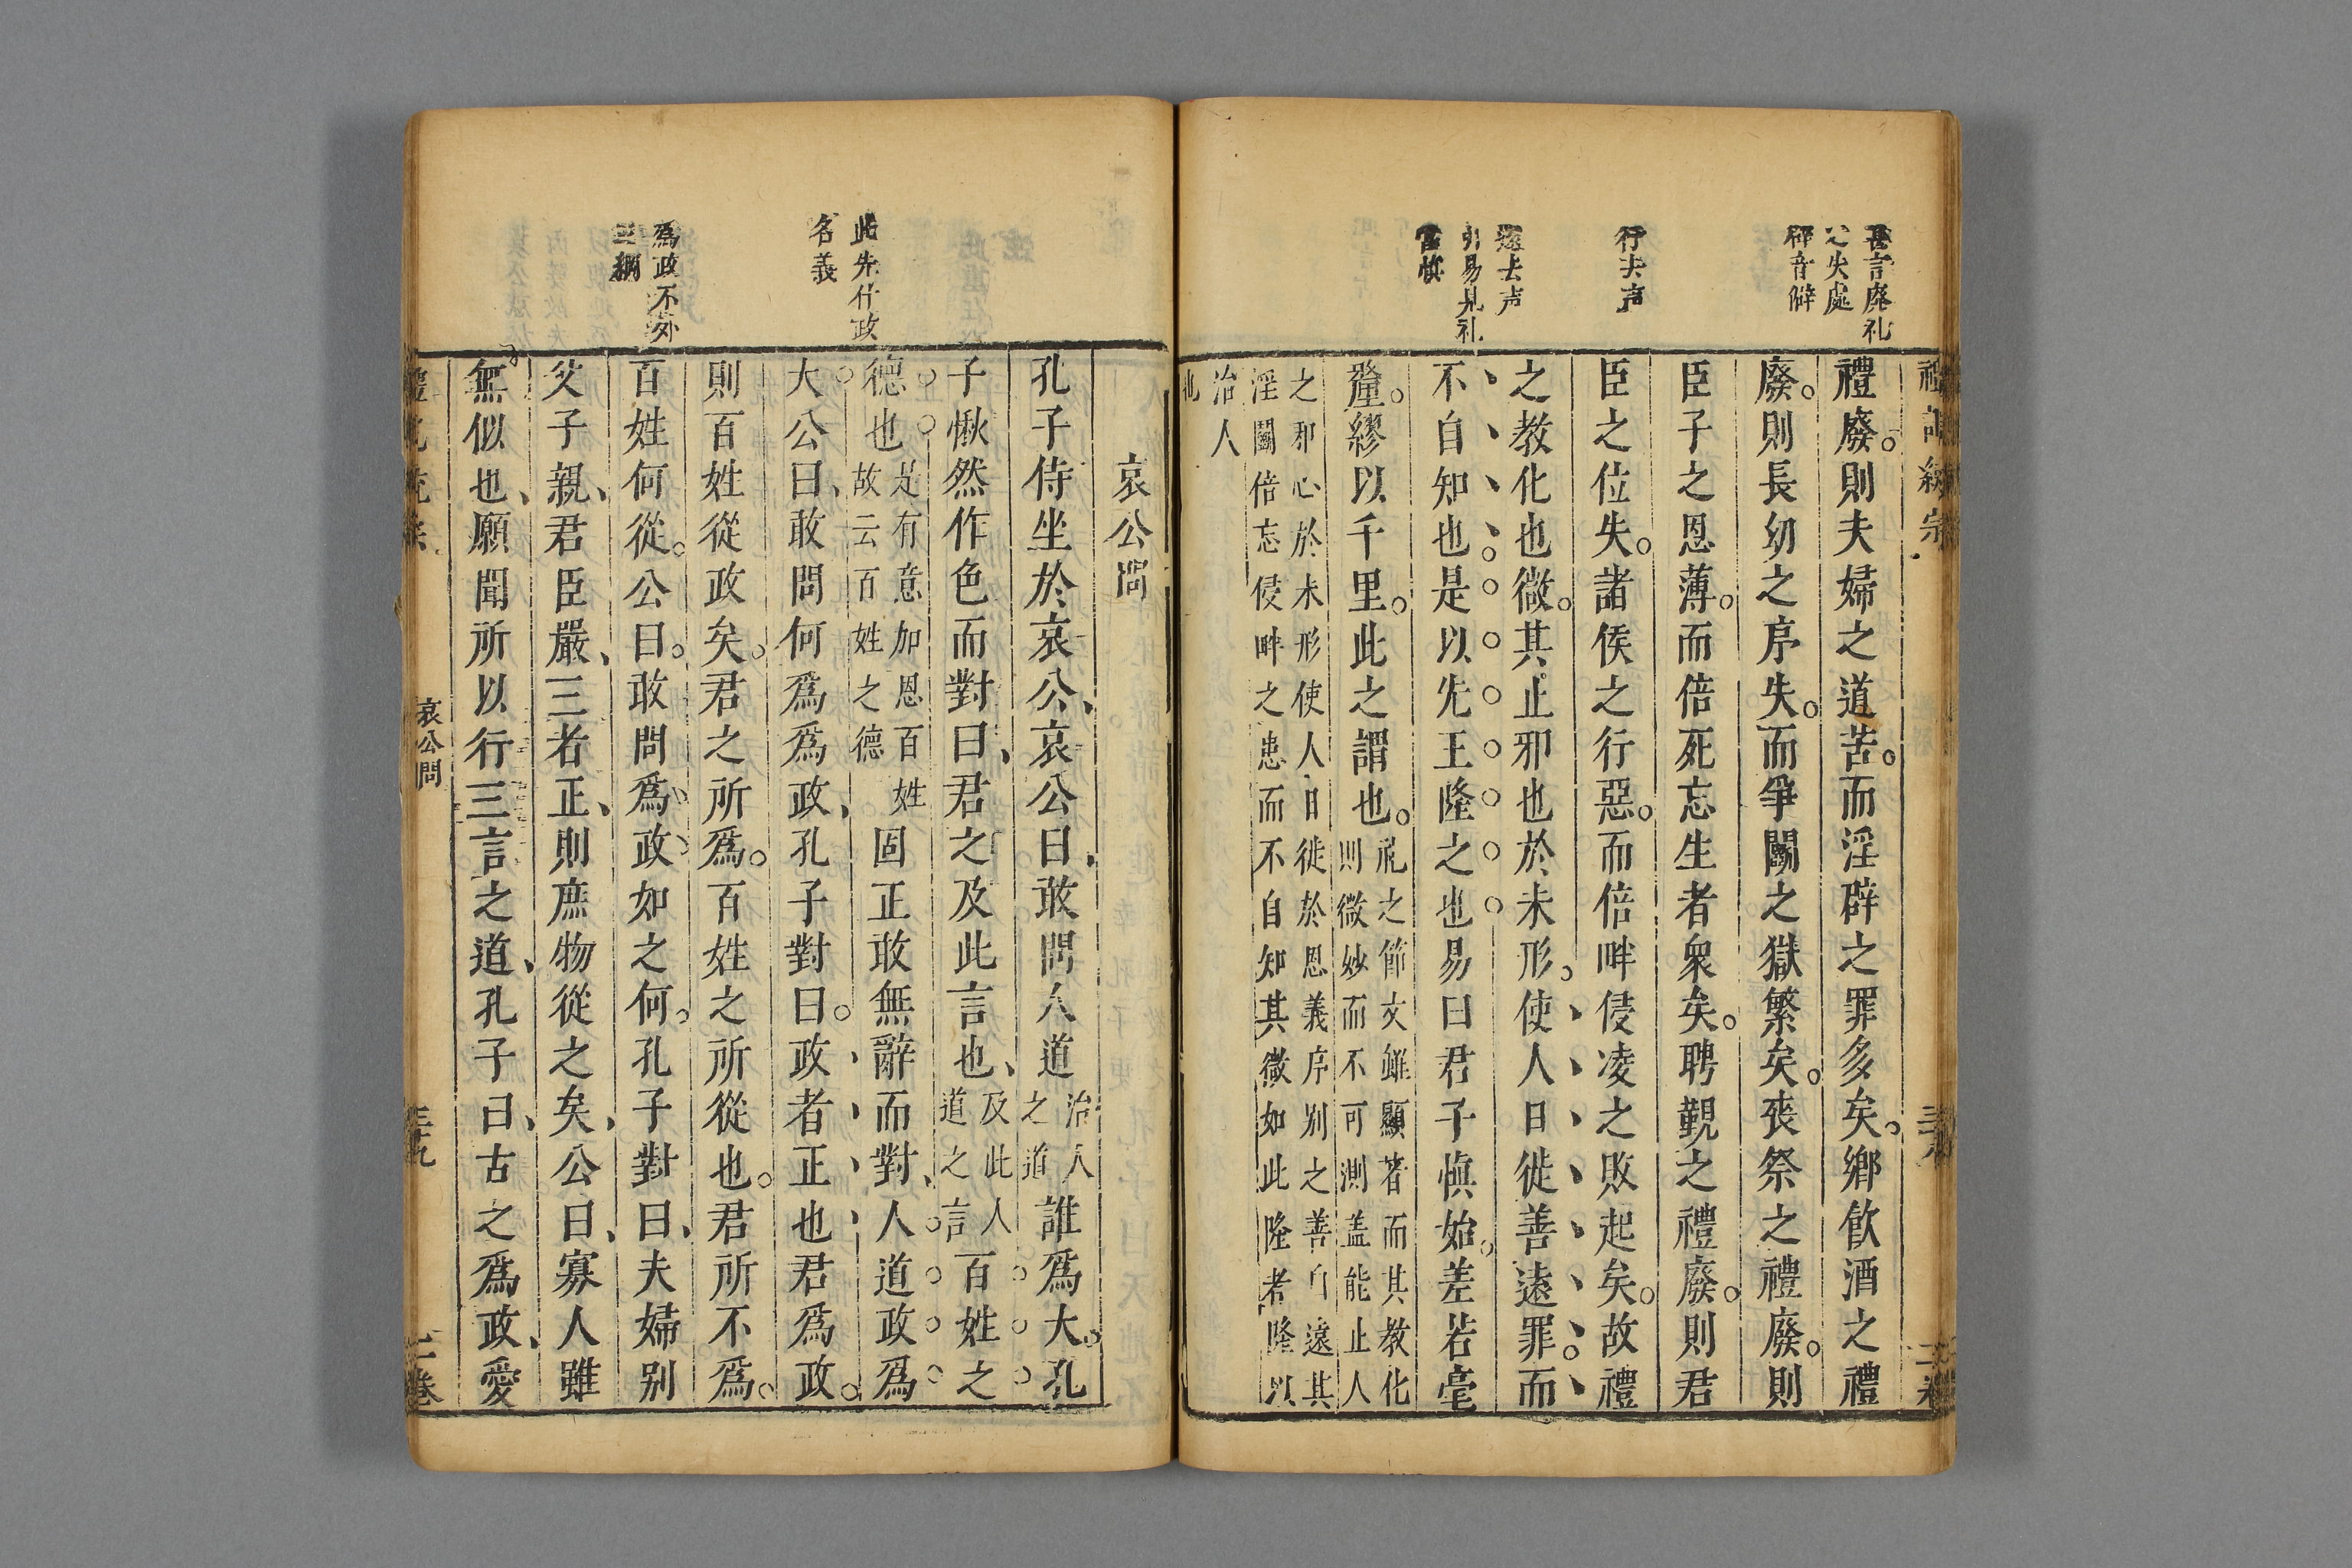 善言廢礼
之失處
辟音僻
行去声
遠去声
引易見礼
當慎
禮廢則夫婦之道苦而淫辟之罪多矣鄉飲酒之禮
廢則長幼之序失而爭鬭之獄繁矣喪祭之禮廢則
臣子之恩薄而倍死忘生者衆矣聘覲之禮廢則君
臣之位失諸侯之行惡而倍畔侵凌之敗起矣故禮
之教化也微其止邪也於未形使人日徙善遠罪而
不自知也是以先王隆之也易曰君子慎始差若毫
釐繆以千里此之謂也
礼之節文雖顯著而其教化
則微妙而不可測盖能止人
之邪心於未形使人日徙於恩義序别之善自遠其
淫鬭倍忘侵畔之患而不自知其微如此隆者隆以
治人
也
此先什政
名義
為政不外
三綱
哀公問
孔子侍坐於哀公哀公曰敢問人道
治人
之道
誰為大孔
子愀然作色而對曰君之及此言也
及此人
道之言
百姓之
德也
是有意加恩百姓
故云百姓之德
固正敢無辭而對人道政為
大公曰敢問何為為政孔子對曰政者正也君為政
則百姓從政矣君之所為百姓之所從也君所不為
百姓何從公曰敢問為政如之何孔子對曰夫婦别
父子親君臣嚴三者正則庶物從之矣公曰寡人雖
無似也願聞所以行三言之道孔子曰古之為政愛
哀公問
三十九
二卷